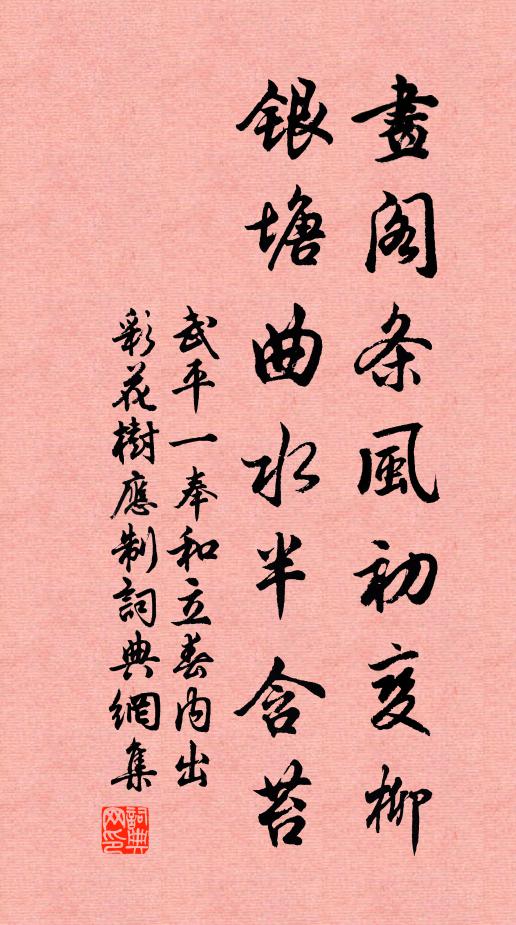 畫閣条風初变柳
銀塘曲水半含苔
武平一奉和立春內出
彩花樹應制詞典網集
詞典网印